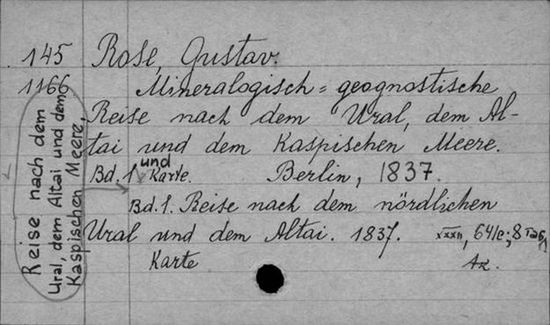 145 Rose, Gustav.
1166 Mineralogisch=geognostische
Reise nach dem Ural, dem Al-
tai und dem Kaspischen Meere.
Bd. 1 und Karte. Berlin, 1837.
Bd. 1. Reise nach dem nördlichen
Ural und dem Altai. 1837. xxxn, 641e; 8 Tag
Karte Az.
Reise nach dem
Ural, dem Altai und dem
Kaspischen Meere,